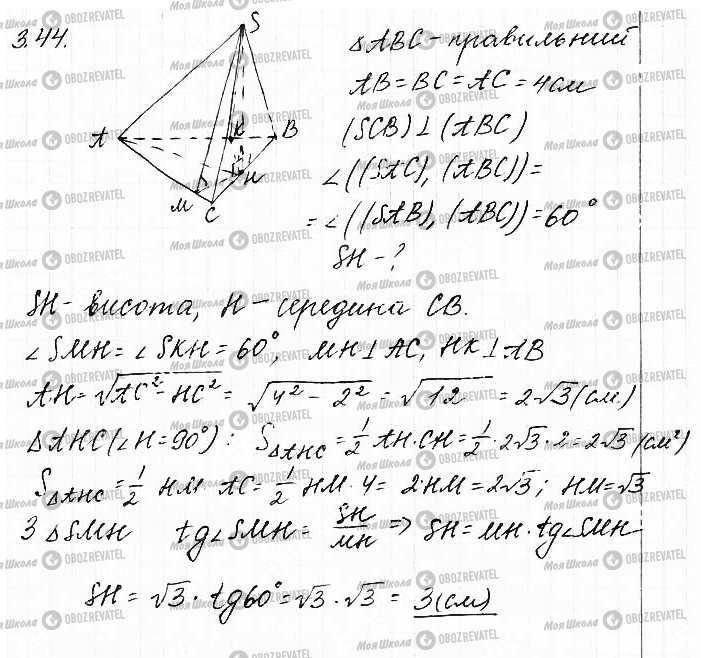 3.44.
S
A
K
B
H
M
C
△ABC - правильний
AB = BC = AC = 4 см
(SCB) ⊥ (ABC)
∠((SAC), (ABC)) =
= ∠((SAB), (ABC)) = 60°
SH - ?
SH - висота, H - середина CB.
∠SMH = ∠SKH = 60°, MH ⊥ AC, HK ⊥ AB
AH = √(AC² - HC²) = √(4² - 2²) = √12 = 2√3 (см)
△AHC (∠H = 90°): S△AHC = 1/2 AH · CH = 1/2 · 2√3 · 2 = 2√3 (см²)
S△AHC = 1/2 HM · AC = 1/2 HM · 4 = 2 · HM = 2√3; HM = √3
З △SMH tg∠SMH = SH/MH => SH = MH · tg∠SMH
SH = √3 · tg60° = √3 · √3 = 3 (см)
Моя Школа OBOZREVATEL